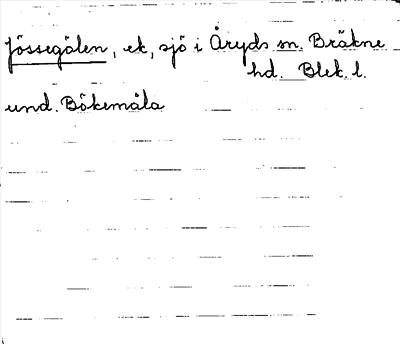 Jössegölen, ek, sjö i Åryds sn. Bräkne
hd. Blek. l.
und. Bökemåla